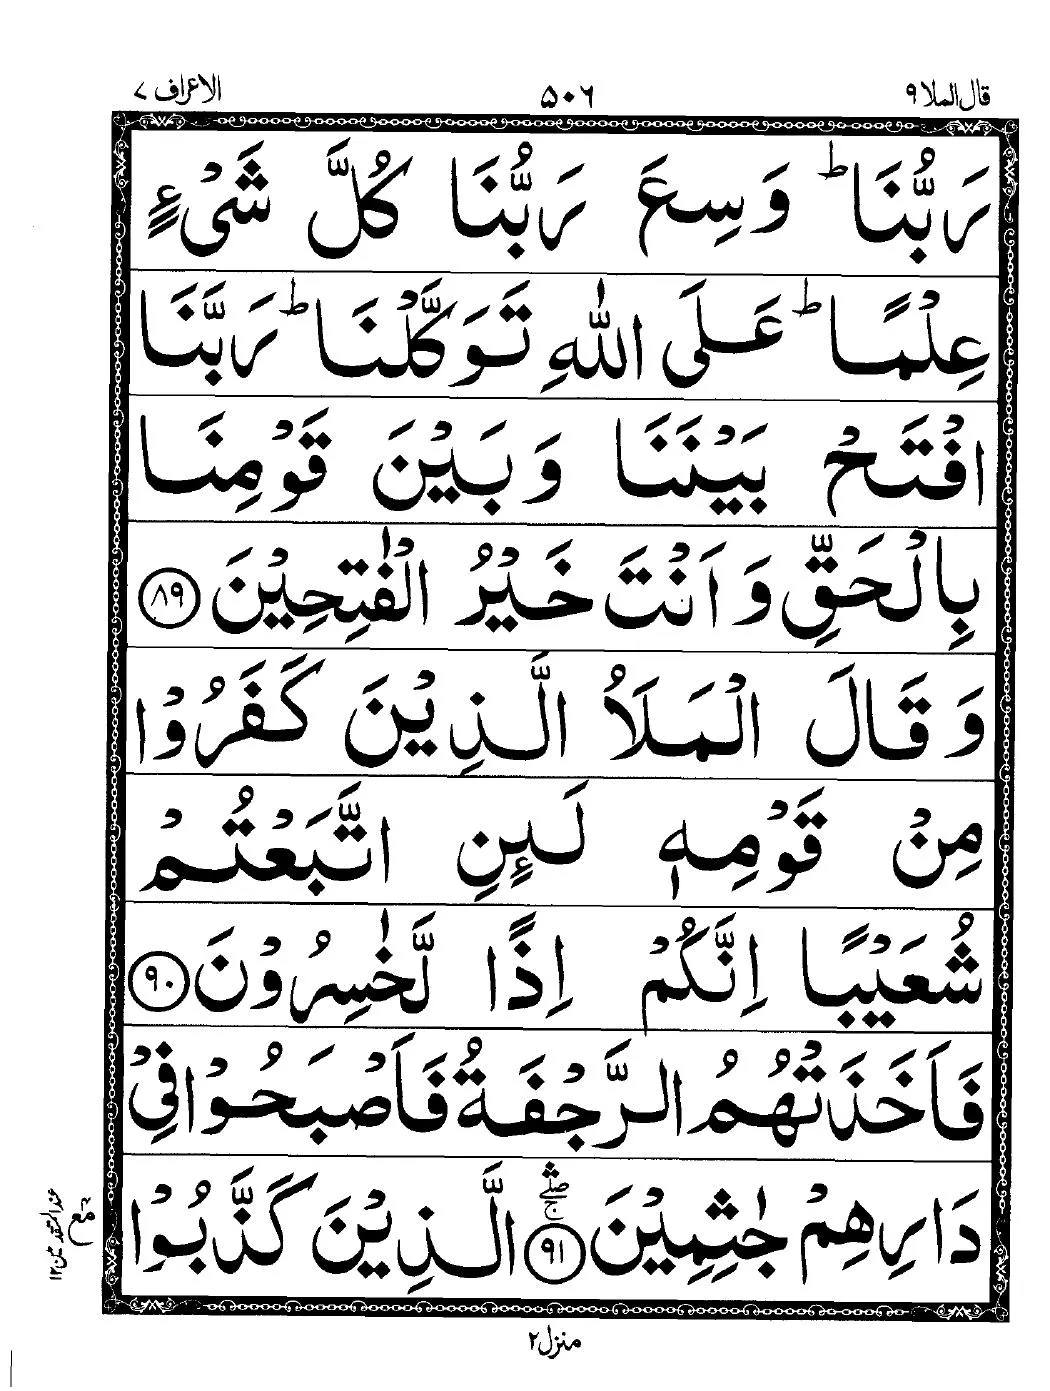 قال الملا ٩
۵۰۶
الاعراف ٧
رَبُّنَا ؕ وَسِعَ رَبُّنَا كُلَّ شَیْءٍ
عِلْمًا ؕ عَلَی اللّٰهِ تَوَكَّلْنَا ؕ رَبَّنَا
افْتَحْ بَیْنَنَا وَ بَیْنَ قَوْمِنَا
بِالْحَقِّ وَ اَنْتَ خَیْرُ الْفٰتِحِیْنَ ﴿۸۹﴾
وَ قَالَ الْمَلَاُ الَّذِیْنَ كَفَرُوْا
مِنْ قَوْمِهٖ لَىِٕنِ اتَّبَعْتُمْ
شُعَیْبًا اِنَّكُمْ اِذًا لَّخٰسِرُوْنَ ﴿۹۰﴾
فَاَخَذَتْهُمُ الرَّجْفَةُ فَاَصْبَحُوْا فِیْ
دَارِهِمْ جٰثِمِیْنَ ﴿۹۱﴾ۚۖ الَّذِیْنَ كَذَّبُوْا
مع
عند المتقدمین ١٢
منزل ٢